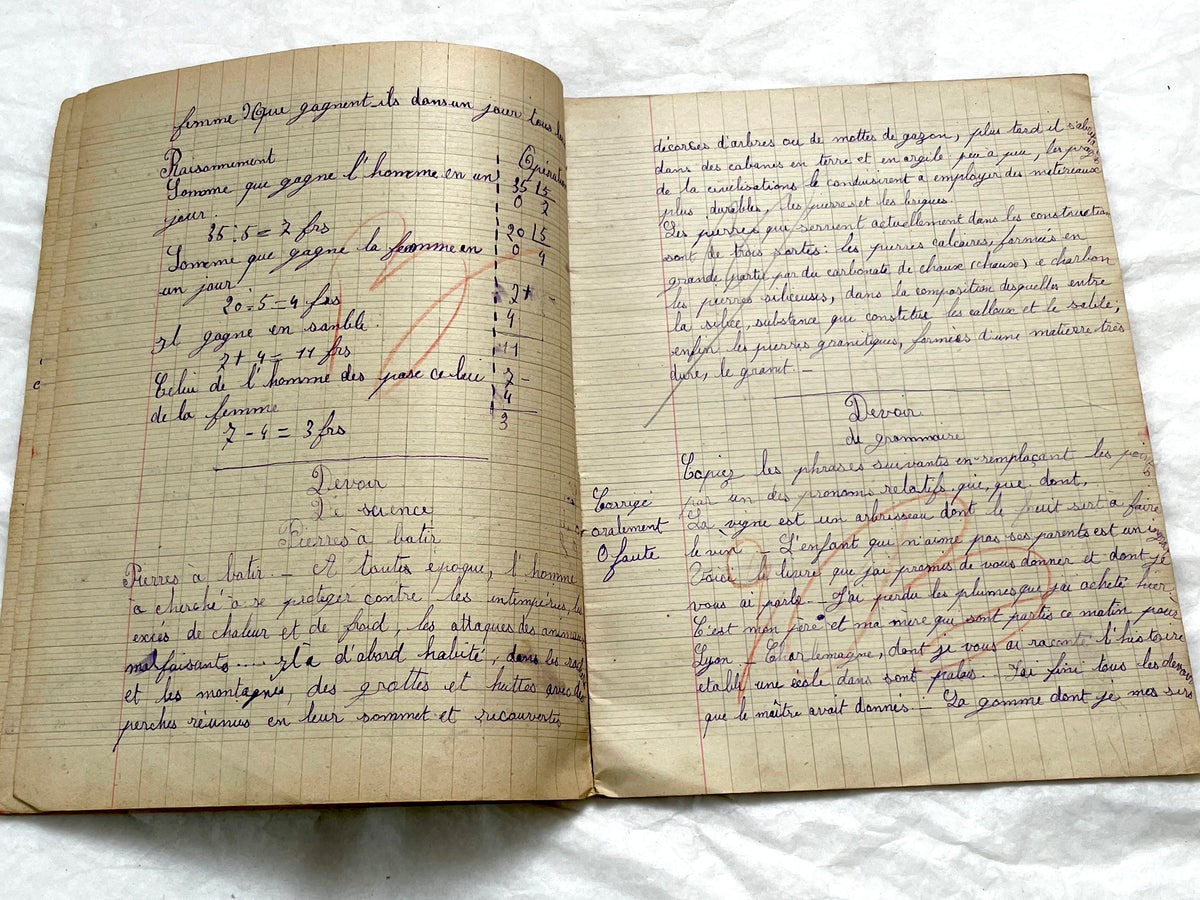 femme? Que gagnent-ils dans un jour tous les
Raisonnement
Opération
Somme que gagne l'homme en un
jour.
35 : 5 = 7 frs
Somme que gagne la femme en
un jour.
20 : 5 = 4 frs
Il gagne en sanble.
7 + 4 = 11 frs
Celui de l'homme des pase ce lui
de la femme
7 - 4 = 3 frs
35 15
0 7
20 15
0 4
7 +
4
11
7 -
4
3
Devoir
De science
Pierres à batir
Pierres à batir. - A toutes époque, l'homme
a cherché à se proteger contre les intempéries, les
excés de chaleur et de froid, les attaques des animaux
malfaisants.... Il a d'abord habité, dans les
et les montagnes, des grottes et huttes avec des
perches réunies en leur sommet et recouvertes
décorses d'arbres ou de mottes de gazon, plus tard il s'abrita
dans des cabanes en terre et en argile peu à peu, les progrès
de la civilisations le conduisirent a employer des materiaux
plus durables, les pierres et les briques.
Les pierres qui servient actuellement dans les construction
sont de trois sortes: les pierres calcaires, formeés en
grande partie par du carbonate de chaux (chaux) e charbon
les pierres siliceuses, dans la composition desquelles entre
la silice, substance qui constitue les cailloux et le sable;
enfin les pierres granitiques, formées d'une matierre très
dure, le granit. -
Devoir
de grammaire
Copiez les phrases suivantes en remplaçant les points
par un des pronoms relatifs qui, que dont,
Corrigé
oralement
0 faute
La vigne est un arbrisseau dont le fruit sert a faire
le vin - L'enfant qui n'aime pas ses parents est un ingrat
Voici le livre que j'ai promis de vous donner et dont je
vous ai parlé. - J'ai perdu les plumes que j'ai acheté hier
C'est mon père et ma mère qui sont partis ce matin pour
Lyon. - Charlemagne, dont je vous ai raconté l'histoire
etabli une école dans sont palais. - J'ai fini tous les devoirs
que le maître avait donnés. - La gomme dont je mes sers